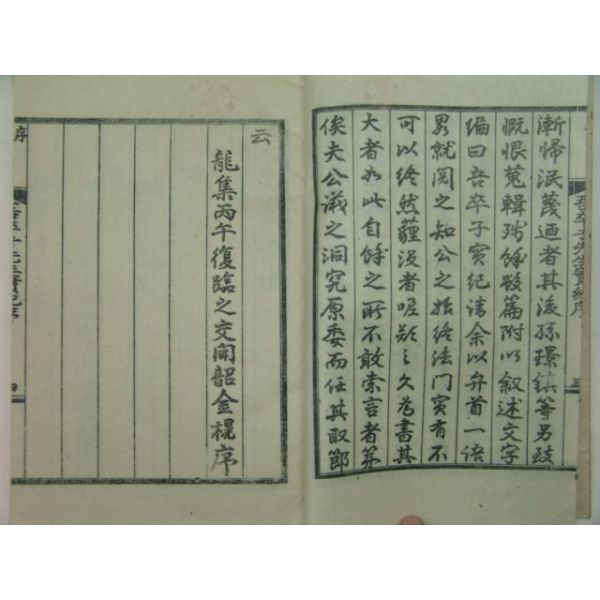 漸歸泯蔑迺者其後孫璟鎮等另跂
慨恨蒐輯殘餘數篇附以敘述文字
編曰吾卒子實紀請余以弁首一語
男就閱之知公之始終法門實有不
可以終然蘿沒者嗟歎之久為書其
大者如此自餘之所不敢索言者第
俟夫公議之洞究原委而任其取節
云
龍集丙午復臨之交聞韶金楻序
序